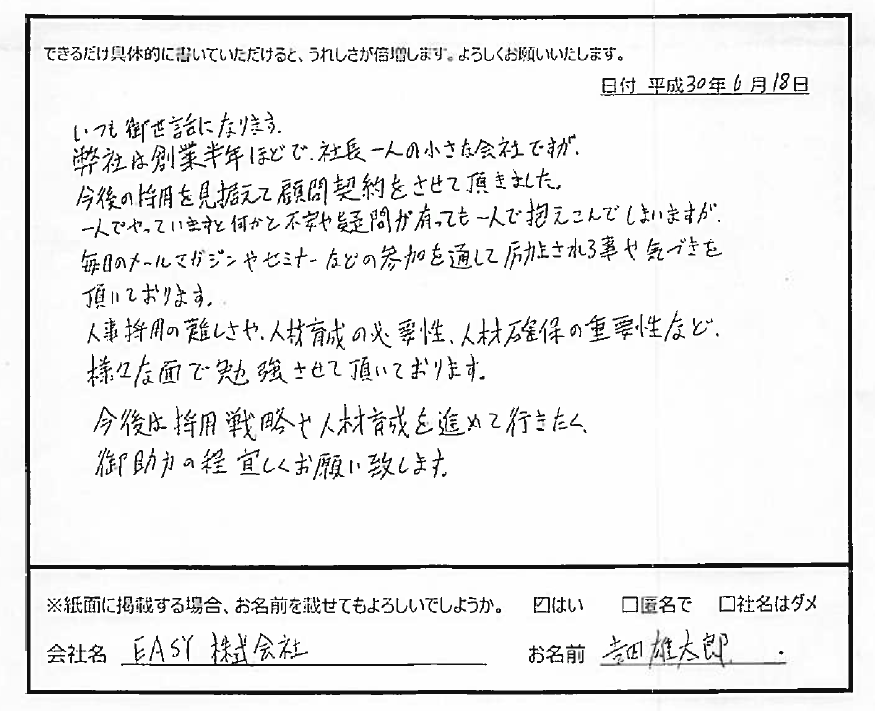 できるだけ具体的に書いていただけると、うれしさが倍増します。よろしくお願いいたします。
日付 平成30年6月18日
いつも御世話になります。
弊社は創業半年ほどで、社長一人の小さな会社ですが、
今後の採用を見据えて顧問契約をさせて頂きました。
一人でやっていますと何かと不安や疑問が有っても一人で抱えこんでしまいますが、
毎日のメールマガジンやセミナーなどの参加を通して励まされる事や気づきを
頂いております。
人事採用の難しさや、人材育成の必要性、人材確保の重要性など、
様々な面で勉強させて頂いております。
今後は採用戦略や人材育成を進めて行きたく、
御助力の程宜しくお願い致します。
※紙面に掲載する場合、お名前を載せてもよろしいでしようか。 ☑はい □匿名で □社名はダメ
会社名 EASY 株式会社 お名前 吉田 雄太郎